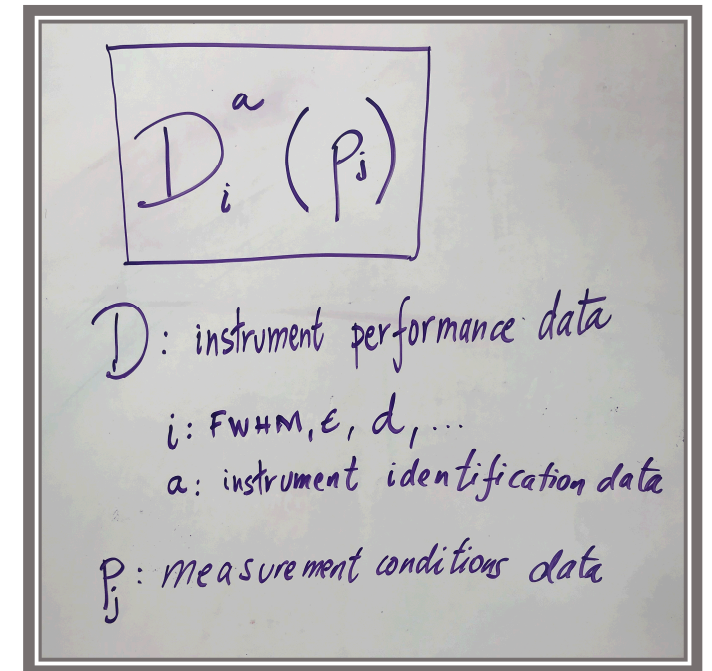 D_i^a (p_j)
D: instrument performance data
i: FWHM, ε, d, ...
a: instrument identification data
p_j: measurement conditions data